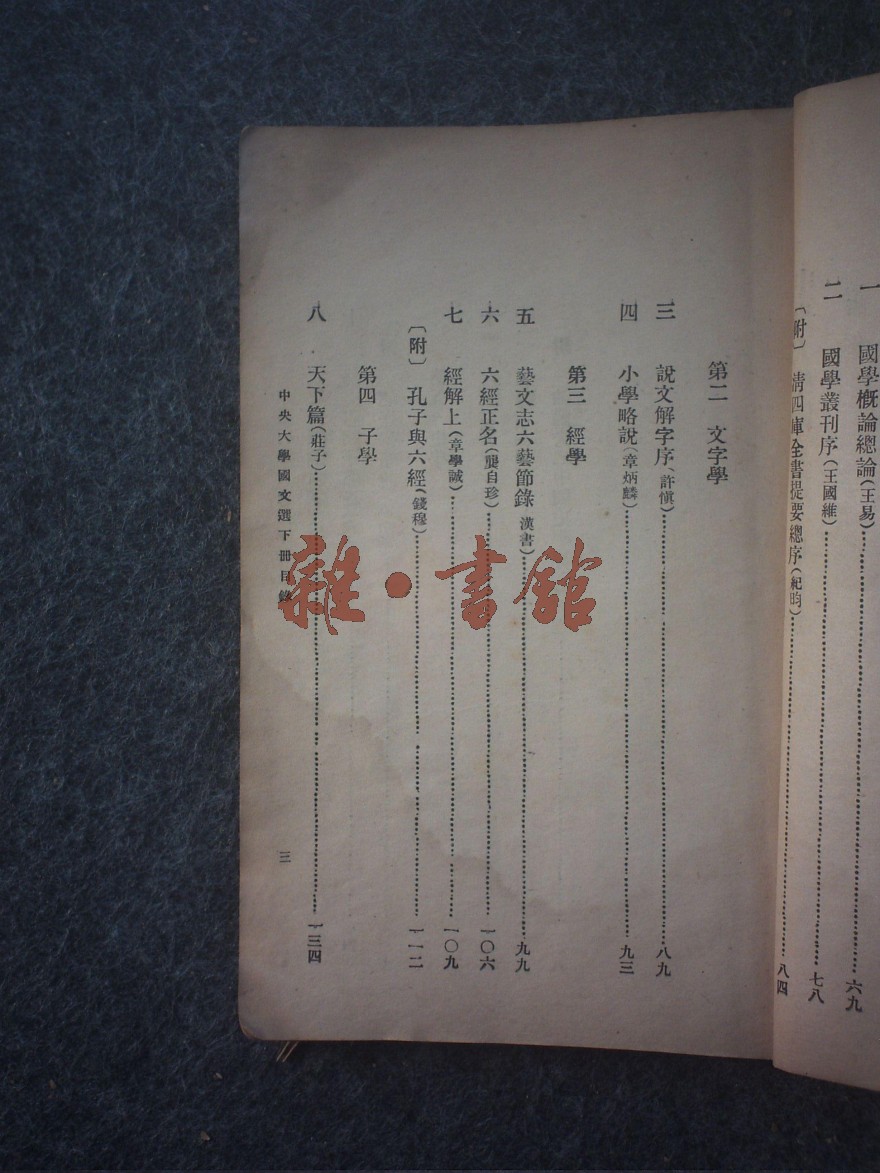 一　國學概論總論（王易）………六九
二　國學叢刊序（王國維）………七八
〔附〕　清四庫全書提要總序（紀昀）………八四
第二　文字學
三　說文解字序（許慎）………八九
四　小學略說（章炳麟）………九三
第三　經學
五　藝文志六藝節錄（漢書）………九九
六　六經正名（龔自珍）………一〇六
七　經解上（章學誠）………一〇九
〔附〕　孔子與六經（錢穆）………一一二
第四　子學
八　天下篇（莊子）………一三四
中央大學國文選下冊目錄　三
雜·書館